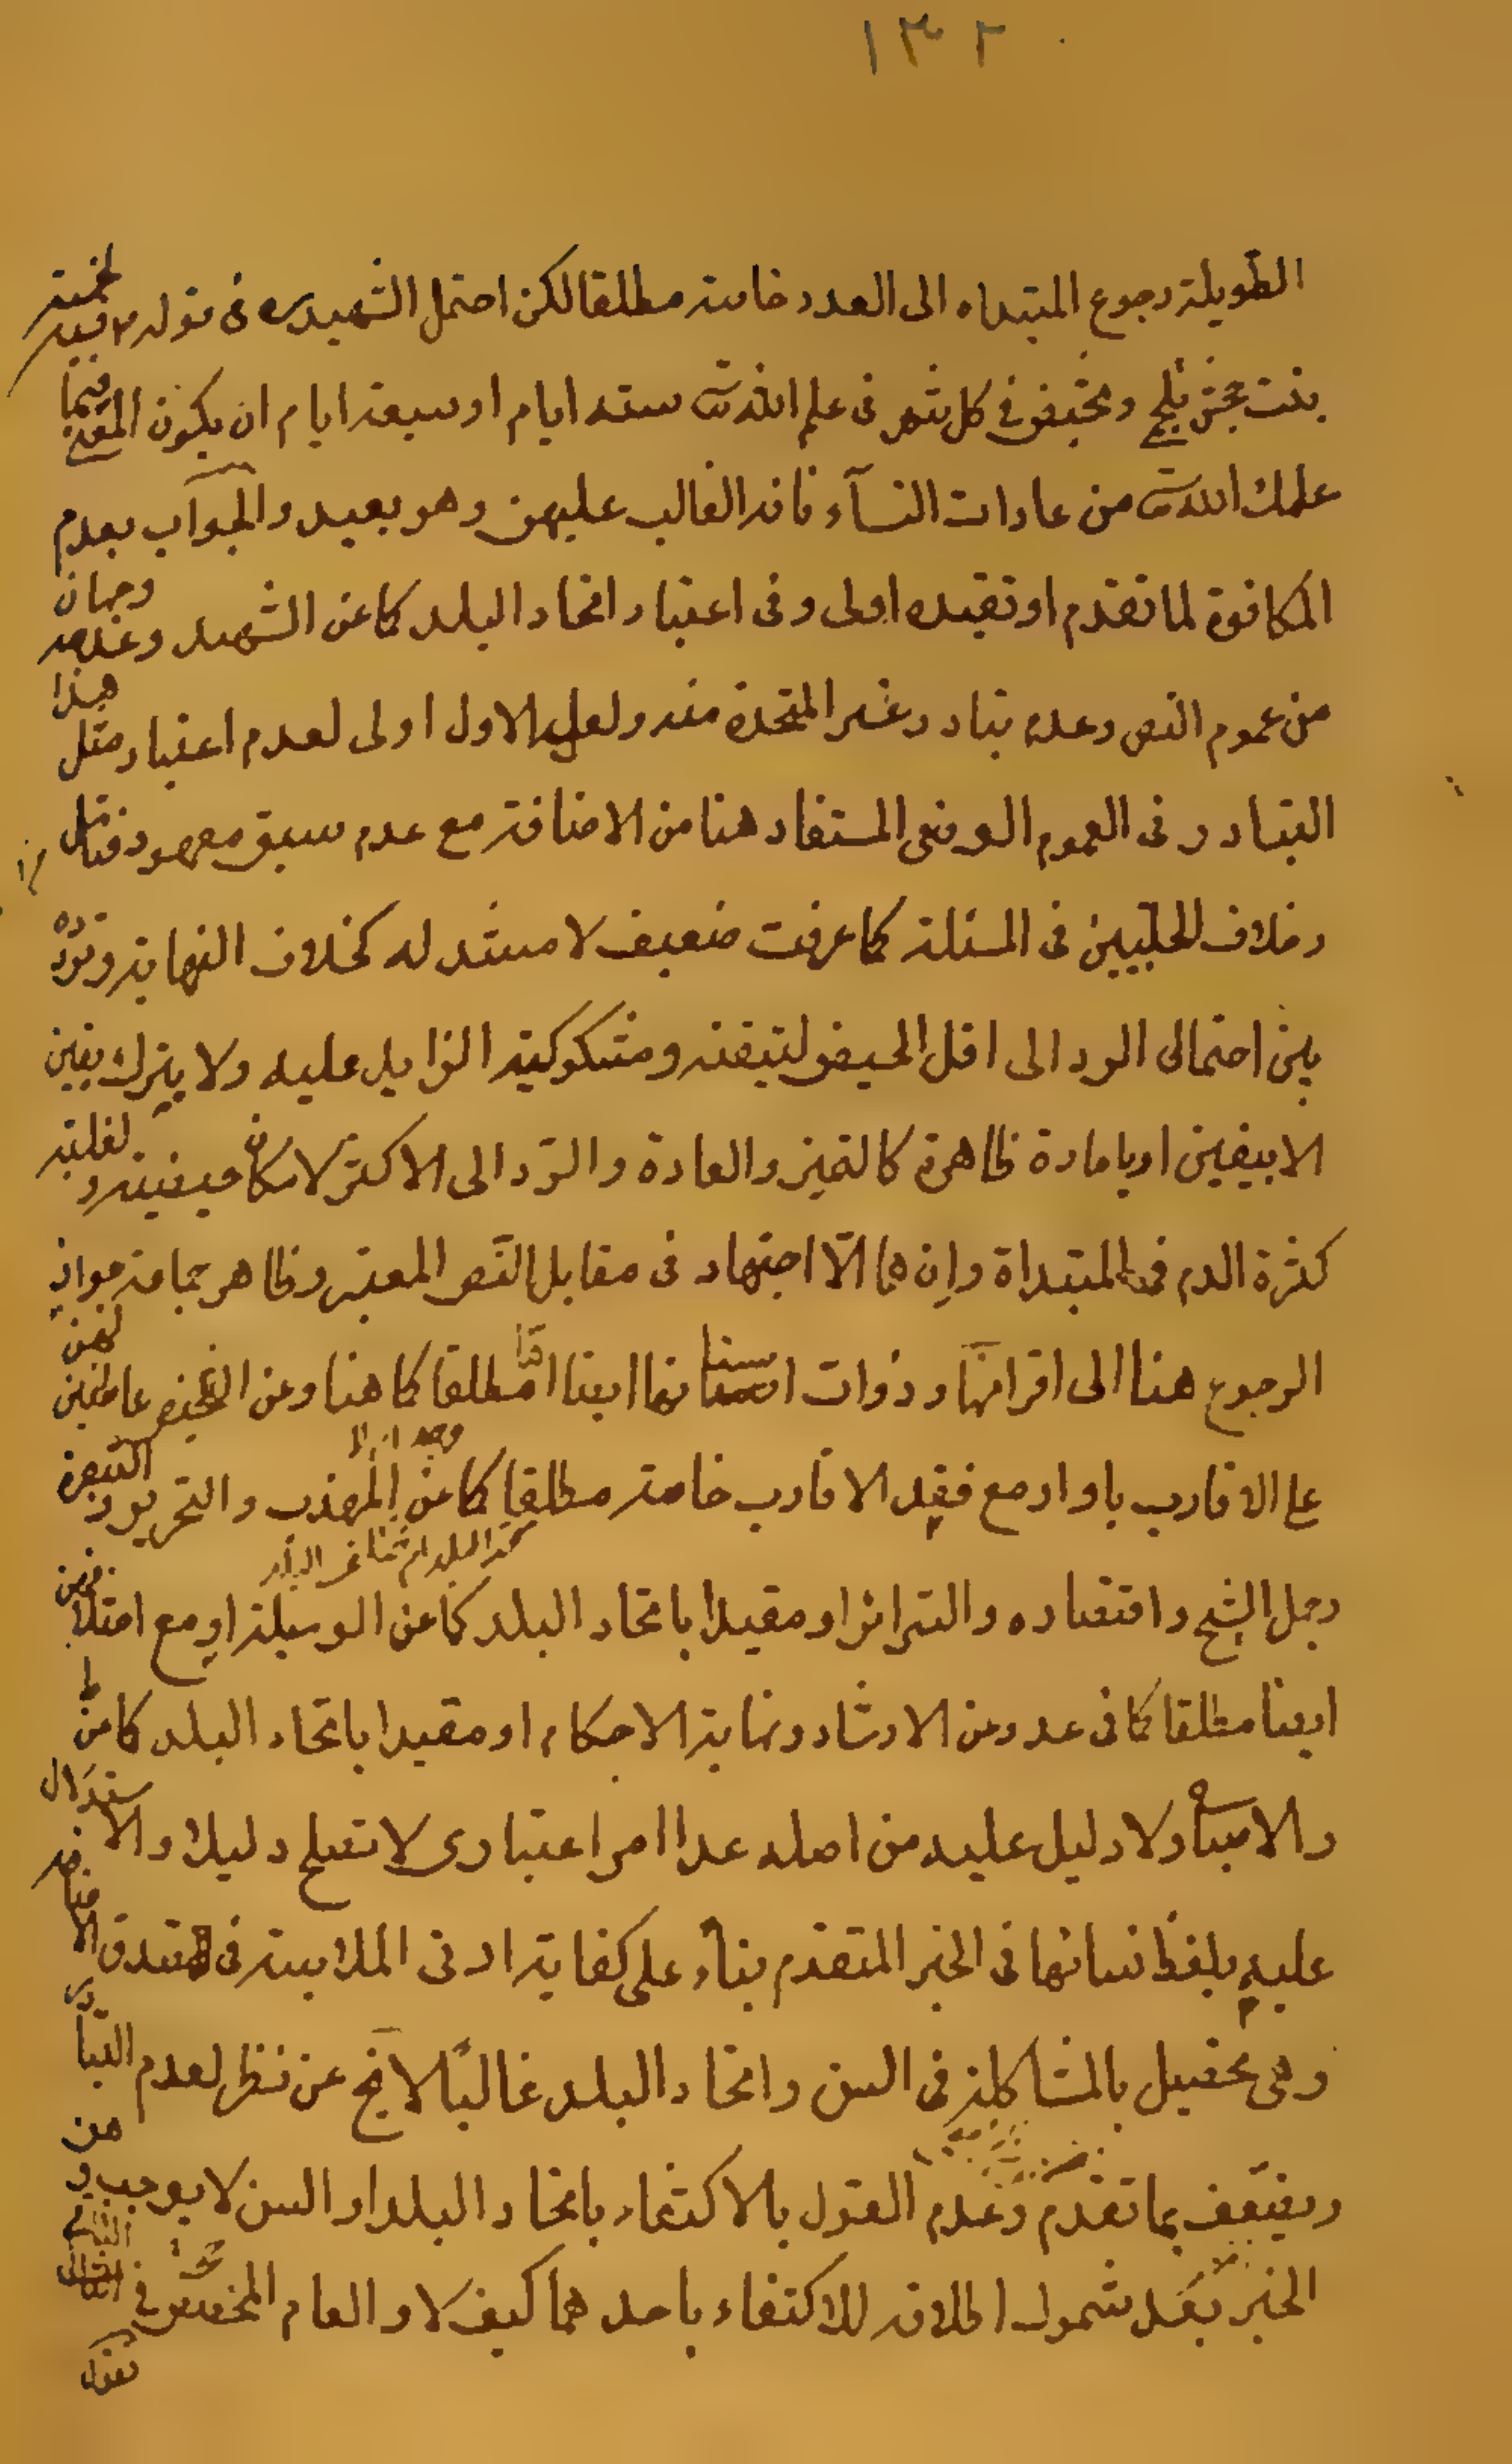 ١٣٢
الطويلة رجوع المبتداه الى العدد خاصة مطلقا لكن احتمل الشهيد ره فى قوله ع لحمنة
بنت جحش تلجمى وتحيضى فى كل شهر فى علم الله ستة ايام او سبعة ايام ان يكون المعنى فيما
علمك الله من عادات النسآء فانه الغالب عليهن وهو بعيد والجوآب بعدم
المكافوة لما تقدم او تقييده اولى وفى اعتبار اتحاد البلد كما عن الشهيد وعدمه وجهان
من عموم النص وعدم تبادر غير المتحدة منه ولعل الاول اولى لعدم اعتبار مثل هذا
التبادر فى العموم الوضعى المستفاد هنا من الاضافة مع عدم سبق معهود فتامل
وخلاف الحلبيين فى المسئلة كما عرفت ضعيف لا مستند له كخلاف النهاية وتردده
بين احتمالى الرد الى اقل الحيض لتيقنه ومشكوكية الزايد عليه ولا يترك يقين
الا بيقين او بامارة ظاهرة كالتميز والعادة والرّد الى الاكثر لامكان حيضيته و لغلبة
كثرة الدم فى المبتداة وإن هما الّا اجتهاد فى مقابل النّص المعتبر وظاهر جماعة جواز
الرجوع هنا الى اقرانها وذوات اسنانها ايضا امّا مطلقا كما هنا وعن التلخيص عاطفين لهن
على الاقارب باو او مع فقد الاقارب خاصة مطلقا كما عن المهذب والتحرير و التبصرة
وجمل الشيخ واقتصاده والسرائر او مقيدا باتحاد البلد كما عن الوسيلة او مع اختلافهن
ايضا مطلقا كما فى عد وعن الارشاد ونهاية الاحكام او مقيدا باتحاد البلد كما عن ط
والاصباح ولا دليل عليه من اصله عدا امر اعتبارى لا تصلح دليلا والاستدلال
عليه بلفظ نسائها فى الخبر المتقدم بناء على كفاية ادنى الملابسة فى صدق الاضافة
وهى تحصل بالمشاكلة فى السن واتحاد البلد غالبًا لا يخ عن نظر لعدم التبادر
ويضعّف بما تقدم وعدم القول بالاكتفاء باتحاد البلد او السن لا يوجب و هن
الخبر بعد شمول اطلاقه للاكتفاء باحدهما كيف لا والعام المخصص فى الباقى
نقول